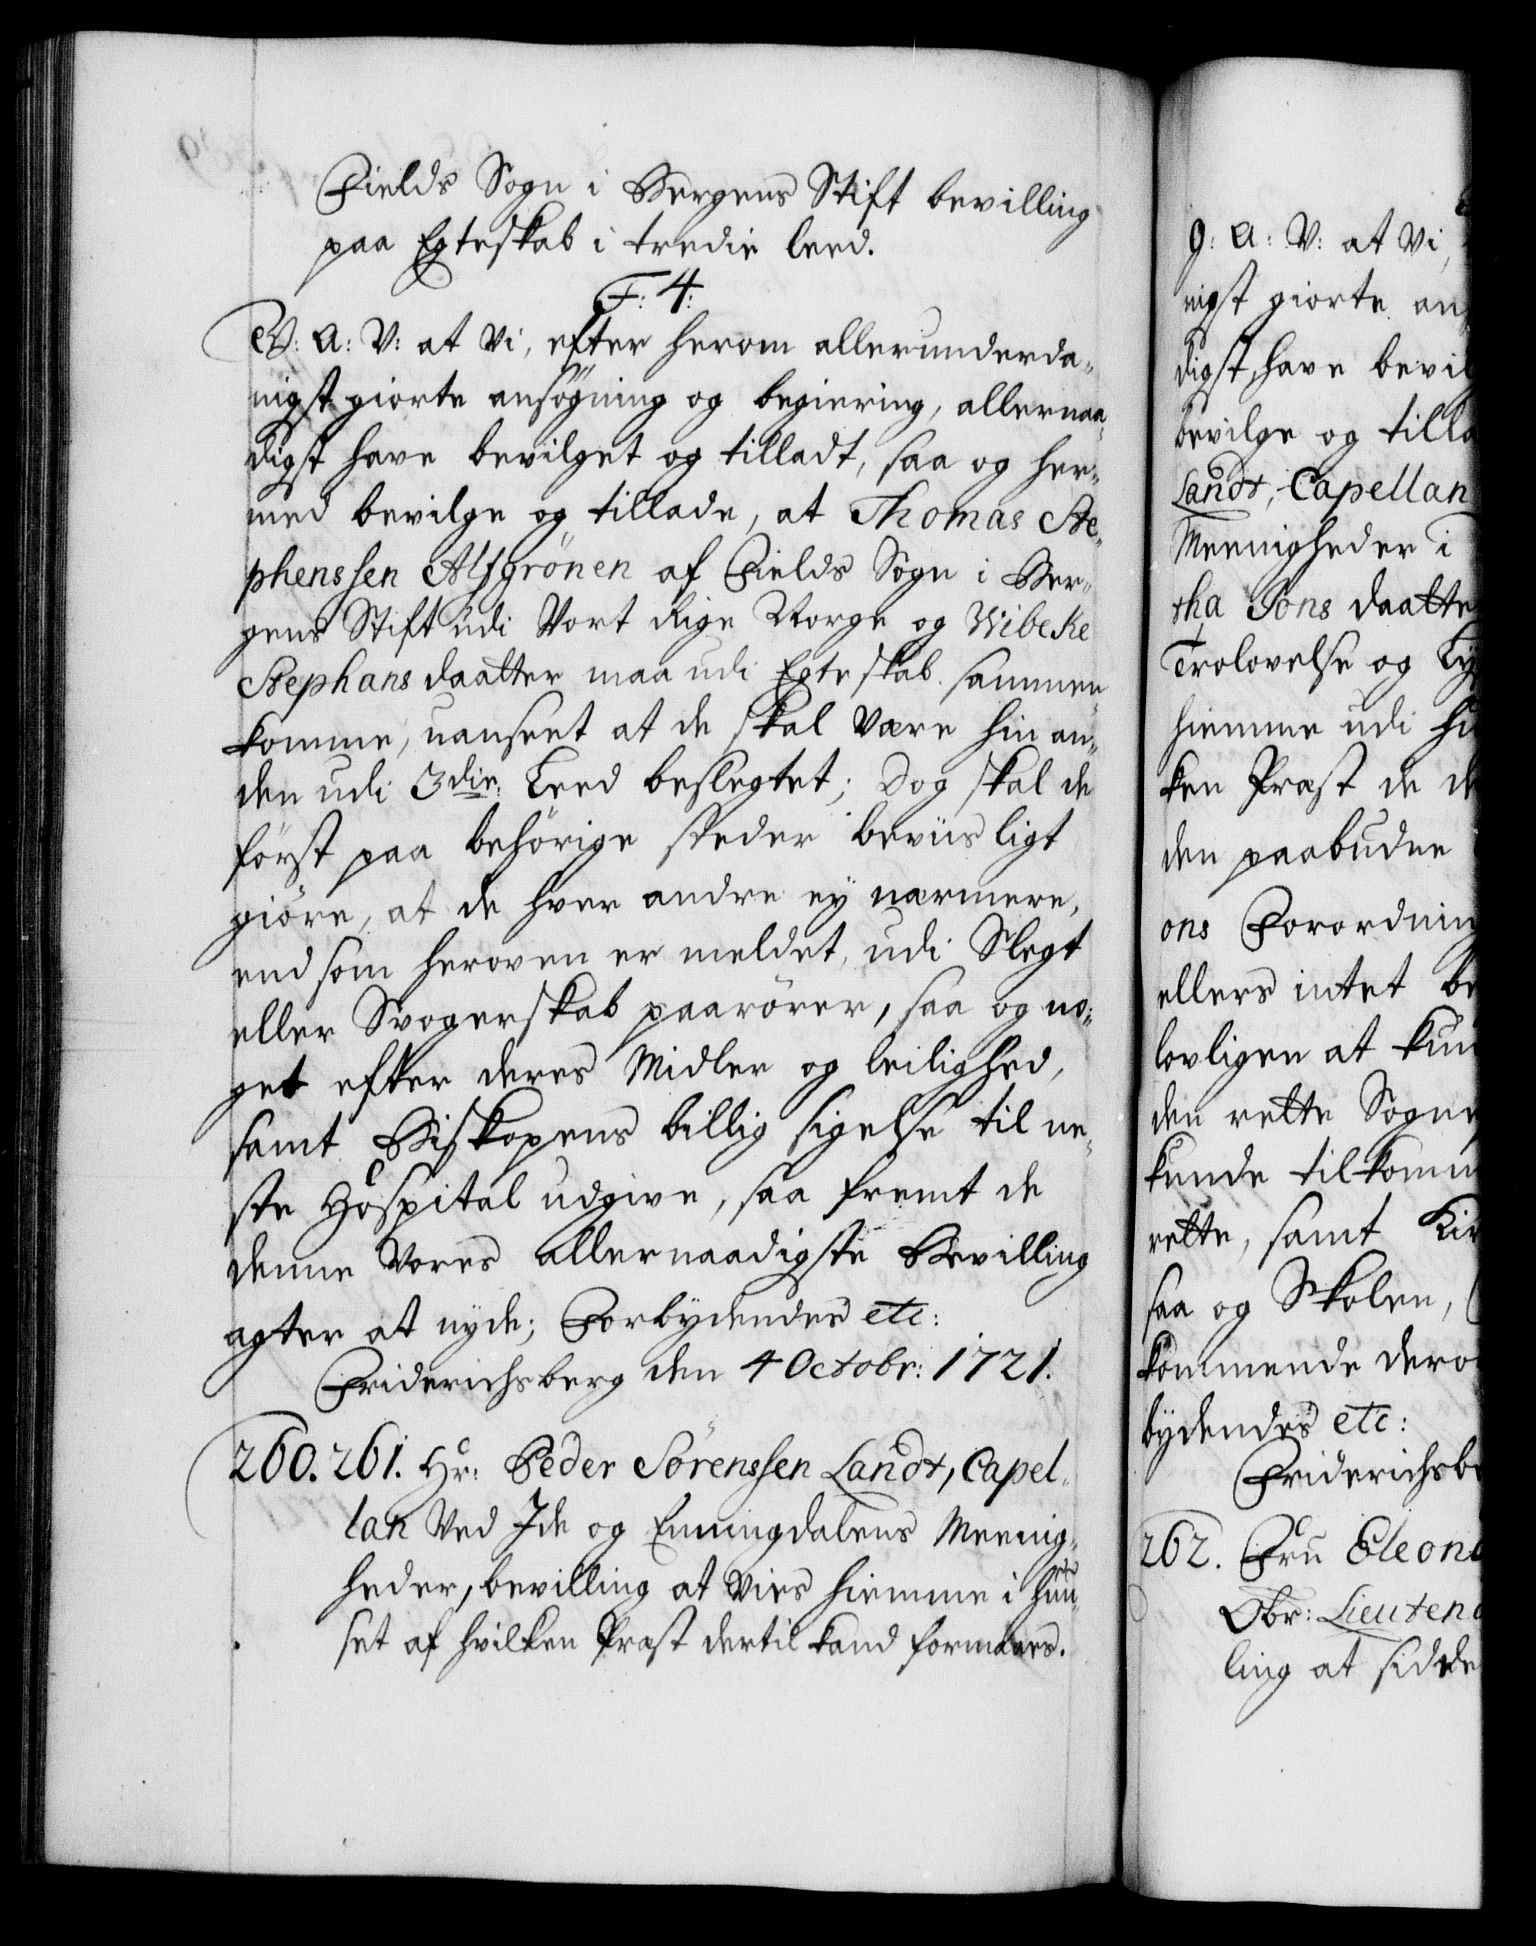 Fields Sogn i Bergens Stift bevilling
paa Egteskab i tredie leed.
F: 4:
G: A: V: at Vi, efter herom allerunderda-
nigst giorte ansøgning og begiering, allernaa-
digst have bevilget og tilladt, saa og her-
med bevilge og tillade, at Thomas Ste-
phenssen Alsgrönen af Fields Sogn i Ber-
gens Stift udi Vort Rige Norge og Wibeke
Stephans daatter maa udi Egteskab sammen-
komme, uanseet at de skal være hin an-
den udi 3die Leed beslegtet; Dog skal de
først paa behörige steder beviisligt
giöre, at de hver andre ey nærmere,
end som heroven er meldet, udi Slegt
eller Svogerskab paarörer, saa og no-
get efter deres Midler og leilighed,
samt Biskopens billig sigelse til ne-
ste Hospital udgive, saa fremt de
denne Vores allernaadigste Bevilling
agter at nyde; Forbydendes etc:
Friderichsberg den 4 Octobr: 1721.
260. 261. Hr: Peder Sörenssen Landt, Capel-
lan Ved Ide og Enningdalens Meenig-
heder, bevilling at Vies hiemme i huu-
set af hvilken Præst dertil kand formaaes.
9: A: V: at Vi,
nigst giorte an
digst have bevil
bevilge og tilla
Landt, Capellan
Meenigheder i
tha Jons daatte
Trolovelse og Ly
hiemme udi hu
ken Præst de de
den paabudne
ons Forordning
ellers intet be
lovligen at kun
den rette Sogne
kunde tilkomm
rette, samt Kir
saa og Skolen,
kommende dero
bydendes etc:
Friderichsbe
262. Fru Eleono
Obr: Lieutena
ling at sidde